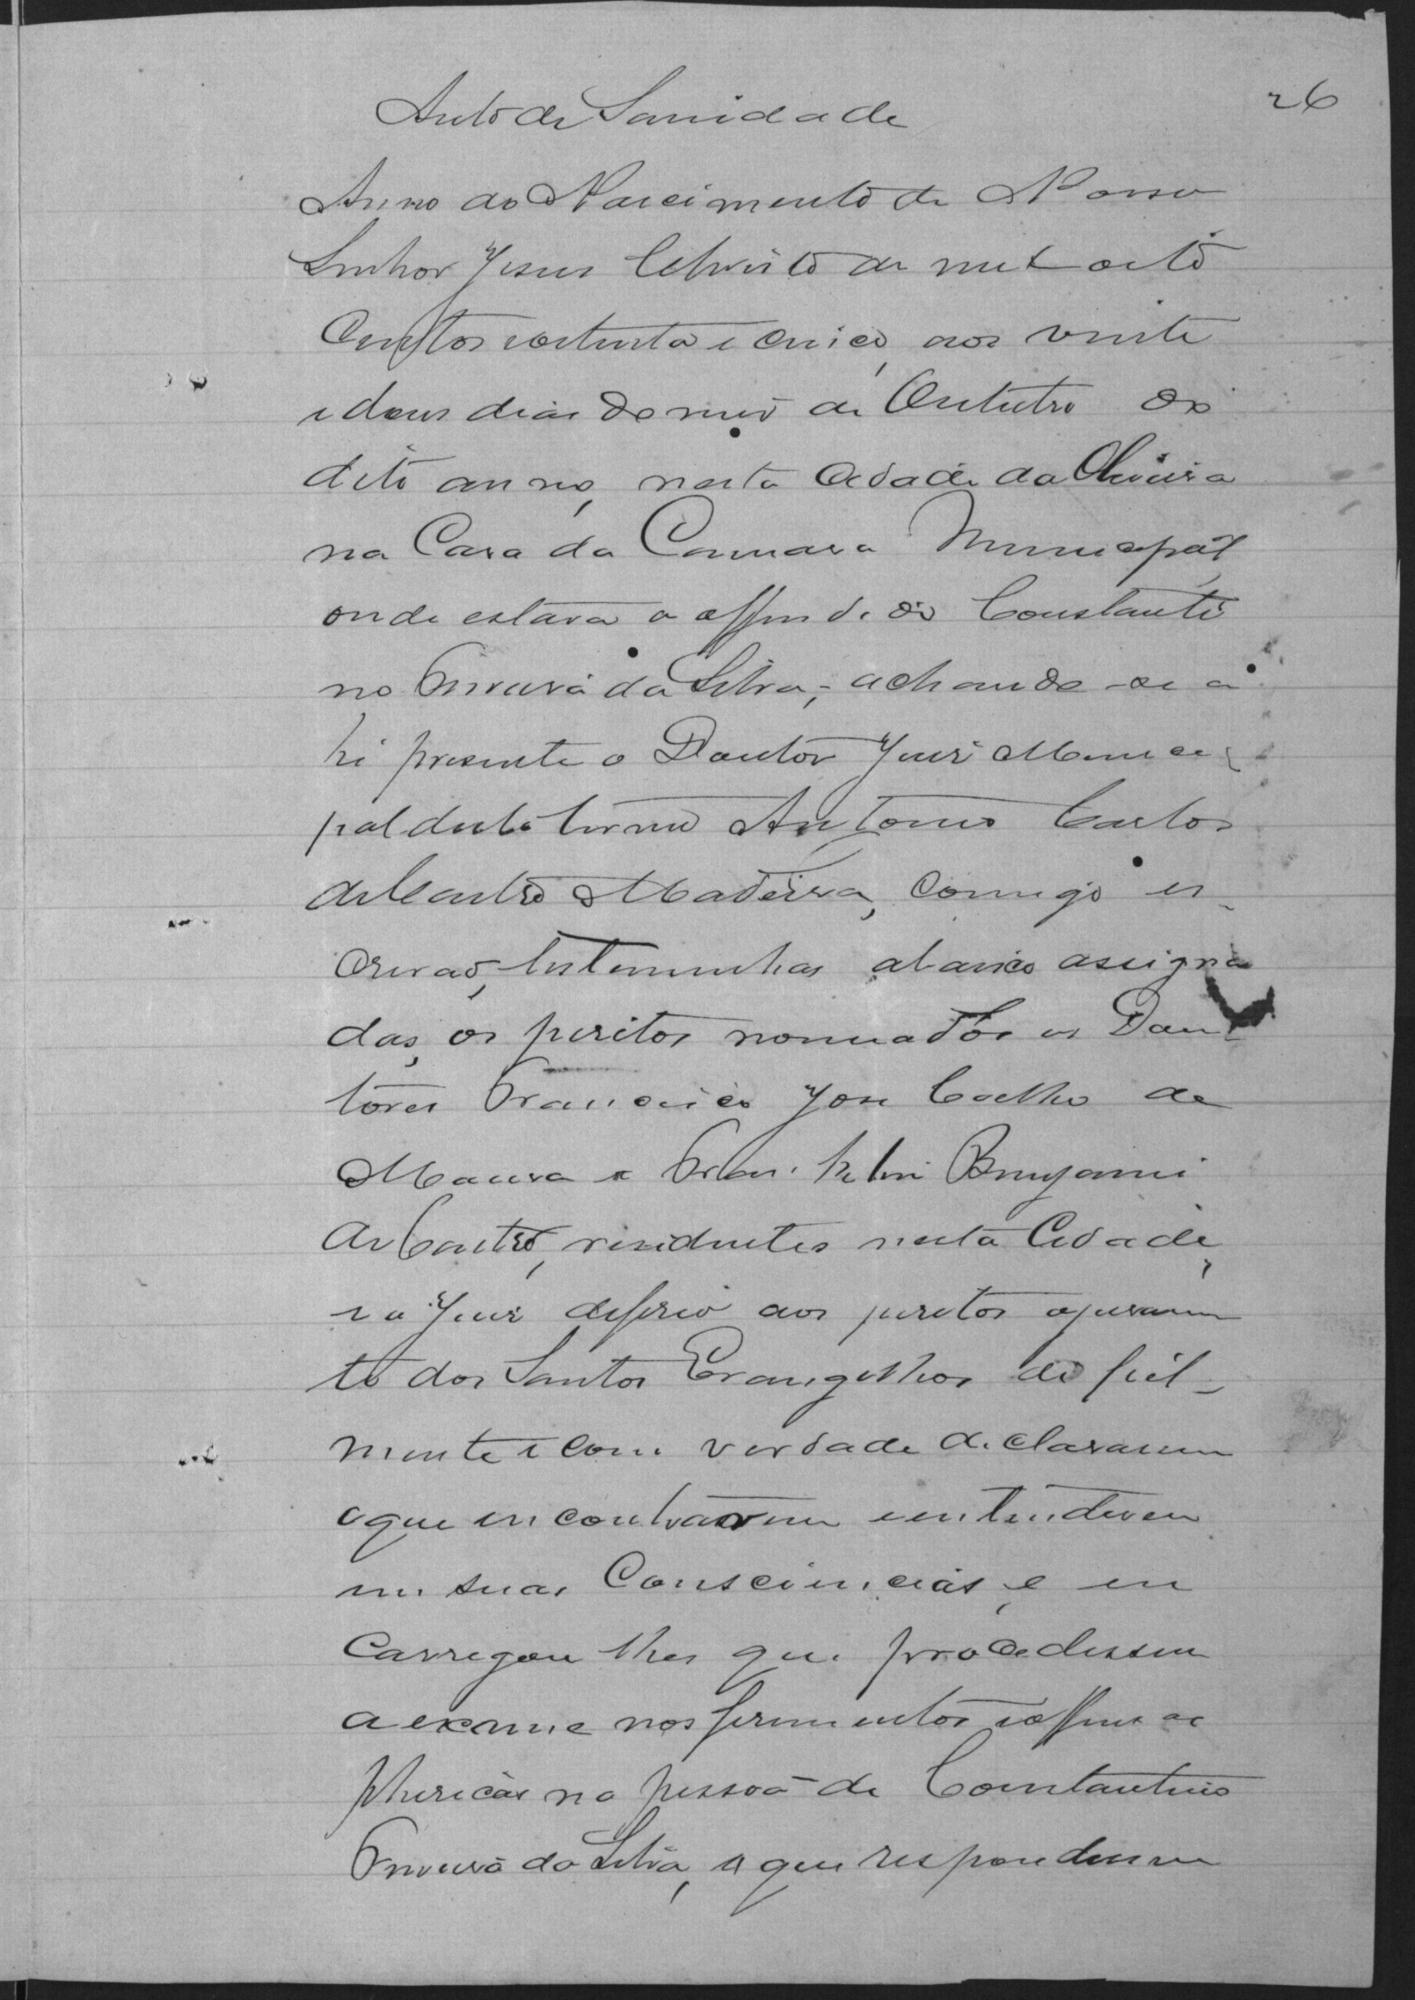 26
Auto de Sanidade
Anno do Nascimento de Nosso
Senhor Jesus Christo de mil oito
Centos e oitenta e cinco, aos vinte
e dous dias do mes de Outubro do
dito anno, nesta Cidade da Oliveira
na Casa da Camara Municipal
onde estava o offendido Constanti
no Ferreira da Silva, achando-se a
hi presente o Doutor Juis Munici
pal deste termo Antonio Carlos
de Castro Madeira, comigo es-
crivão, testemunhas abaixo assigna
das, os peritos nomeados os Dou
tores Francisco José Coelho de
Moura e Franklin Benjamim
de Castro, residentes nesta Cidade,
e o Juis deferio aos peritos o juramen
to dos Santos Evangelhos de fiel-
mente e com verdade declararem
o que encontrarem e entenderem
em suas Consciencias, e en
carregou lhes que procedessem
a exame nos ferimentos e offensas
phisicas na pessoa de Constantino
Ferreira da Silva, e que respondessem